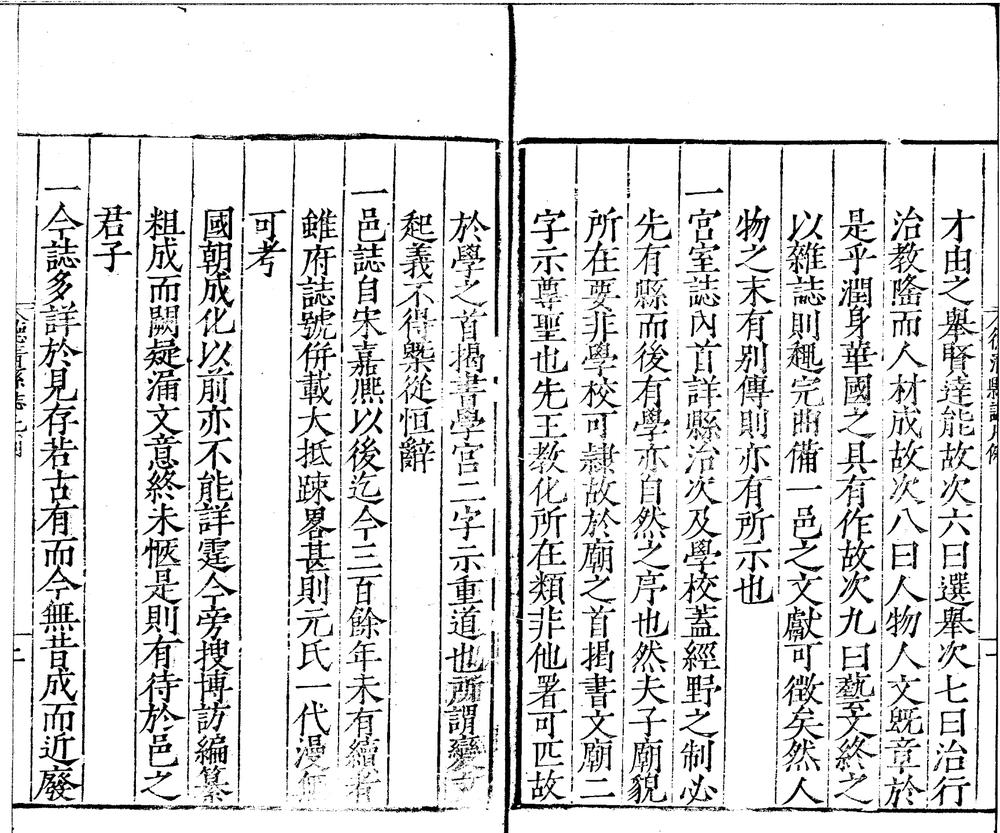 才由之舉賢達能故次六曰選舉次七曰治行
治教隆而人材成故次八曰人物人文既章於
是乎潤身華國之具有作故次九曰藝文終之
以雜誌則趣完曲備一邑之文獻可徵矣然人
物之末有别傳則亦有所示也
一宮室誌內首詳縣治次及學校蓋經野之制必
先有縣而後有學亦自然之序也然夫子廟貌
所在要非學校可隷故於廟之首揭書文廟二
字示尊聖也先王教化所在類非他署可匹故
於學之首揭書學宮二字示重道也所謂變文
起義不得槩從恒辭
一邑誌自宋嘉熈以後迄今三百餘年未有續者
雖府誌號併載大抵踈畧甚則元氏一代漫無
可考
國朝成化以前亦不能詳霆今旁搜博訪編纂
粗成而闕疑漏文意終未愜是則有待於邑之
君子
一今誌多詳於見存若古有而今無昔成而近廢